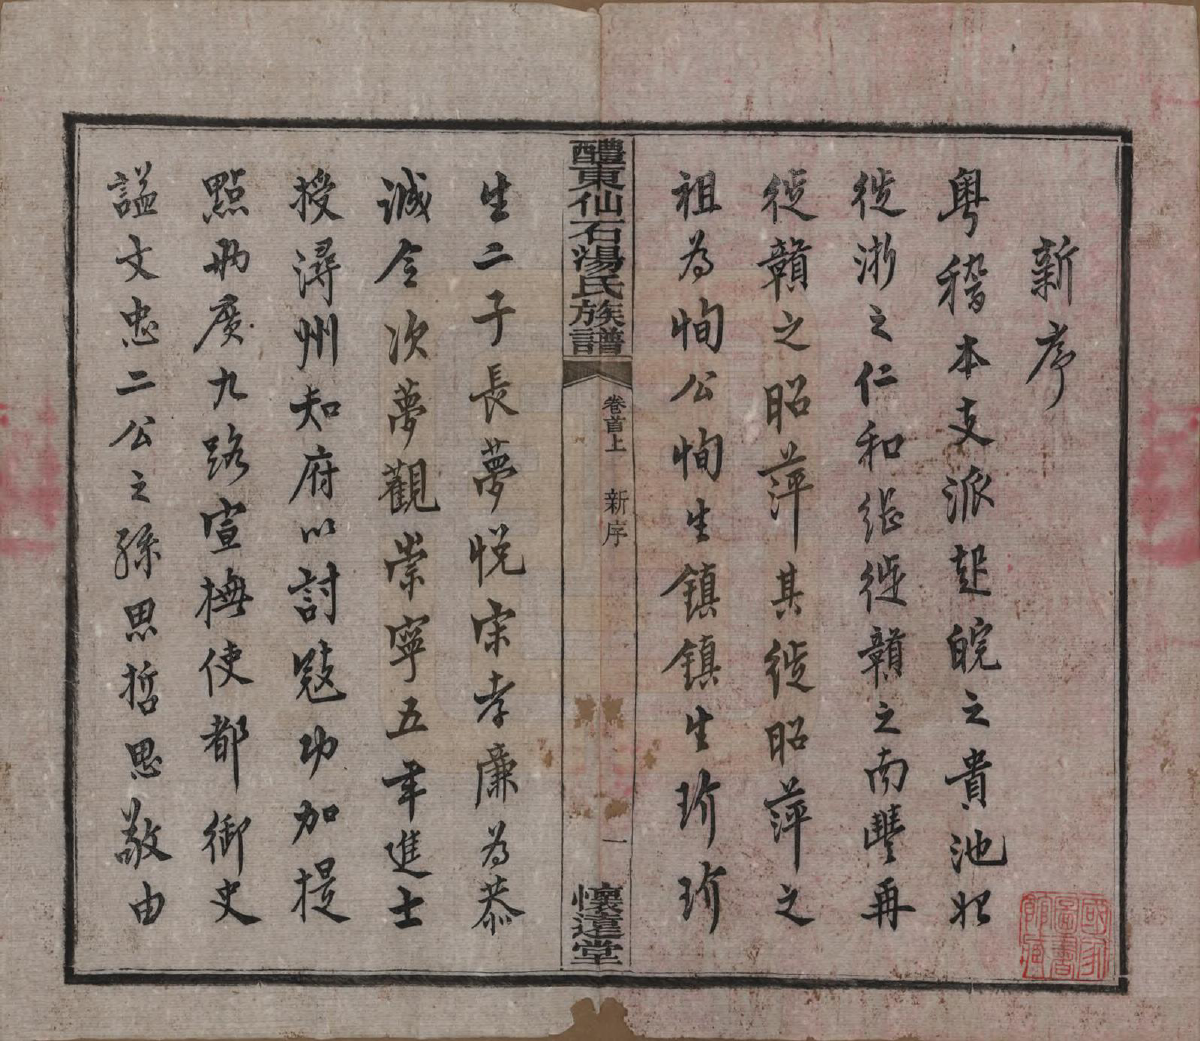 新序
粵稽本支派起皖之貴池始
徙浙之仁和繼徙贛之南豐再
徙贛之昭萍其徙昭萍之
祖為恂公恂生鎮鎮生玠玠
醴東仙石湯氏族譜
卷首上
新序
一
懷遠堂
生二子長夢悅宋孝廉為恭
誠令次夢觀崇寧五年進士
授潯州知府以討寇功加提
點兩廣九路宣撫使都御史
謚文忠二公之孫思哲思敬由
國家圖書館藏